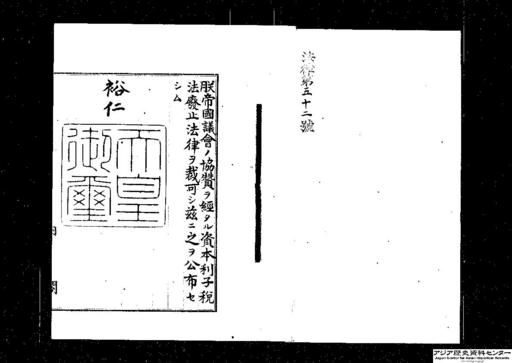 法律第三十二號
朕帝國議會ノ協贊ヲ經タル資本利子税
法廢止法律ヲ裁可シ茲ニ之ヲ公布セ
シム
裕仁
天皇
御璽
内
閣
アジア歴史資料センター
Japan Center for Asian Historical Records